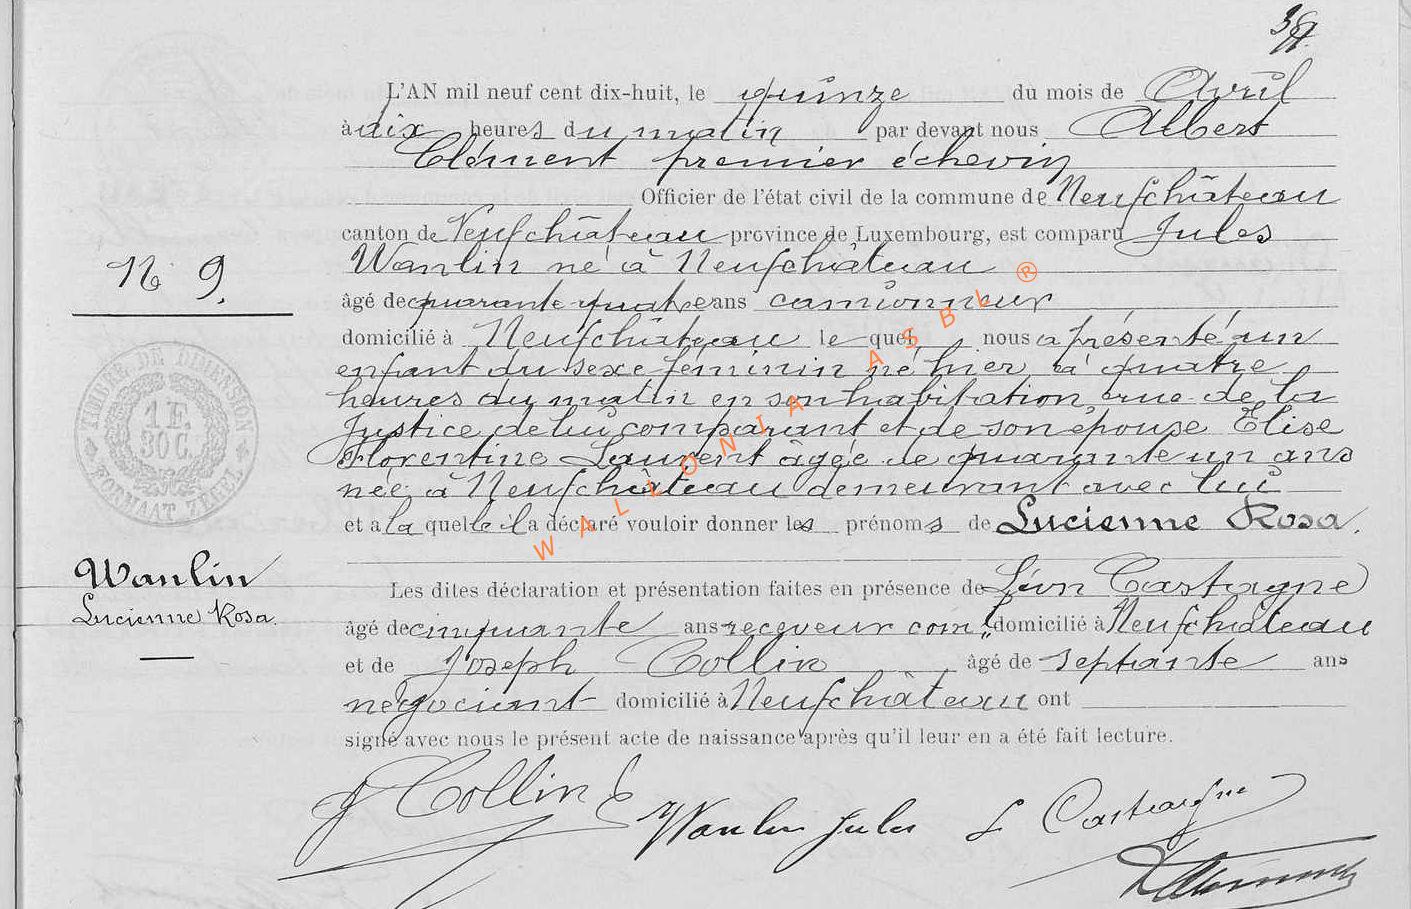 L'AN mil neuf cent dix-huit, le quinze du mois de Avril
à dix heures du matin par devant nous Albert
Clément premier échevin
Officier de l'état civil de la commune de Neufchâteau
canton de Neufchâteau province de Luxembourg, est comparu Jules
Wanlin né à Neufchâteau
N° 9.
âgé de quarante quatre ans camionneur
domicilié à Neufchâteau le quel nous a présenté un
enfant du sexe féminin né hier à quatre
heures du matin en son habitation, rue de la
Justice de lui comparant et de son épouse Elise
Florentine Laurent âgée de quarante un ans
née à Neufchâteau demeurant avec lui
et a la quelle il a déclaré vouloir donner les prénoms de Lucienne Rosa.
TIMBRE DE DIMENSION
1 F. 30 C.
FORMAAT ZEGEL
Wanlin
Lucienne Rosa.
Les dites déclaration et présentation faites en présence de Léon Castagne
âgé de cinquante ans receveur com.l domicilié à Neufchâteau
et de Joseph Collin âgé de septante ans
négociant domicilié à Neufchâteau ont
signé avec nous le présent acte de naissance après qu'il leur en a été fait lecture.
J Collin Wanlin Jules L Castagne
WALLONIA ASBL ®